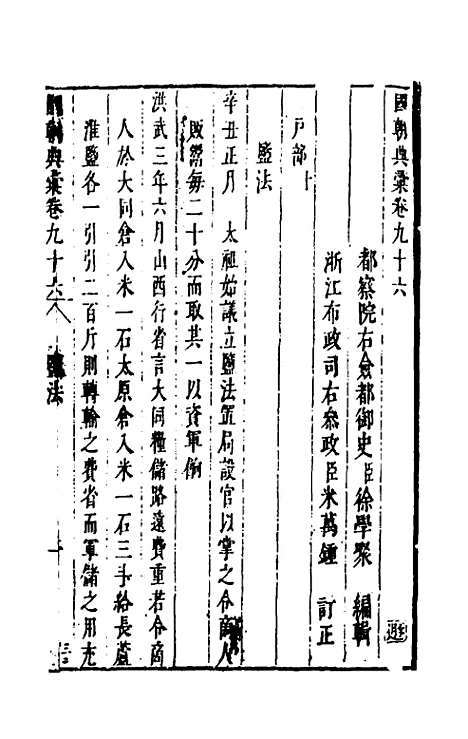 國朝典彙卷九十六
都察院右僉都御史臣徐學聚 編輯
浙江布政司右參政臣米萬鍾 訂正
戶部十
鹽法
辛丑正月 太祖始議立鹽法置局設官以掌之令商人
販鬻每二十分而取其一以資軍餉
洪武三年六月山西行省言大同糧儲路遠費重若令商
人於大同倉入米一石太原倉入米一石三斗給長蘆
淮鹽各一引引二百斤則轉輸之費省而軍儲之用充
國朝典彙卷九十六 鹽法 一